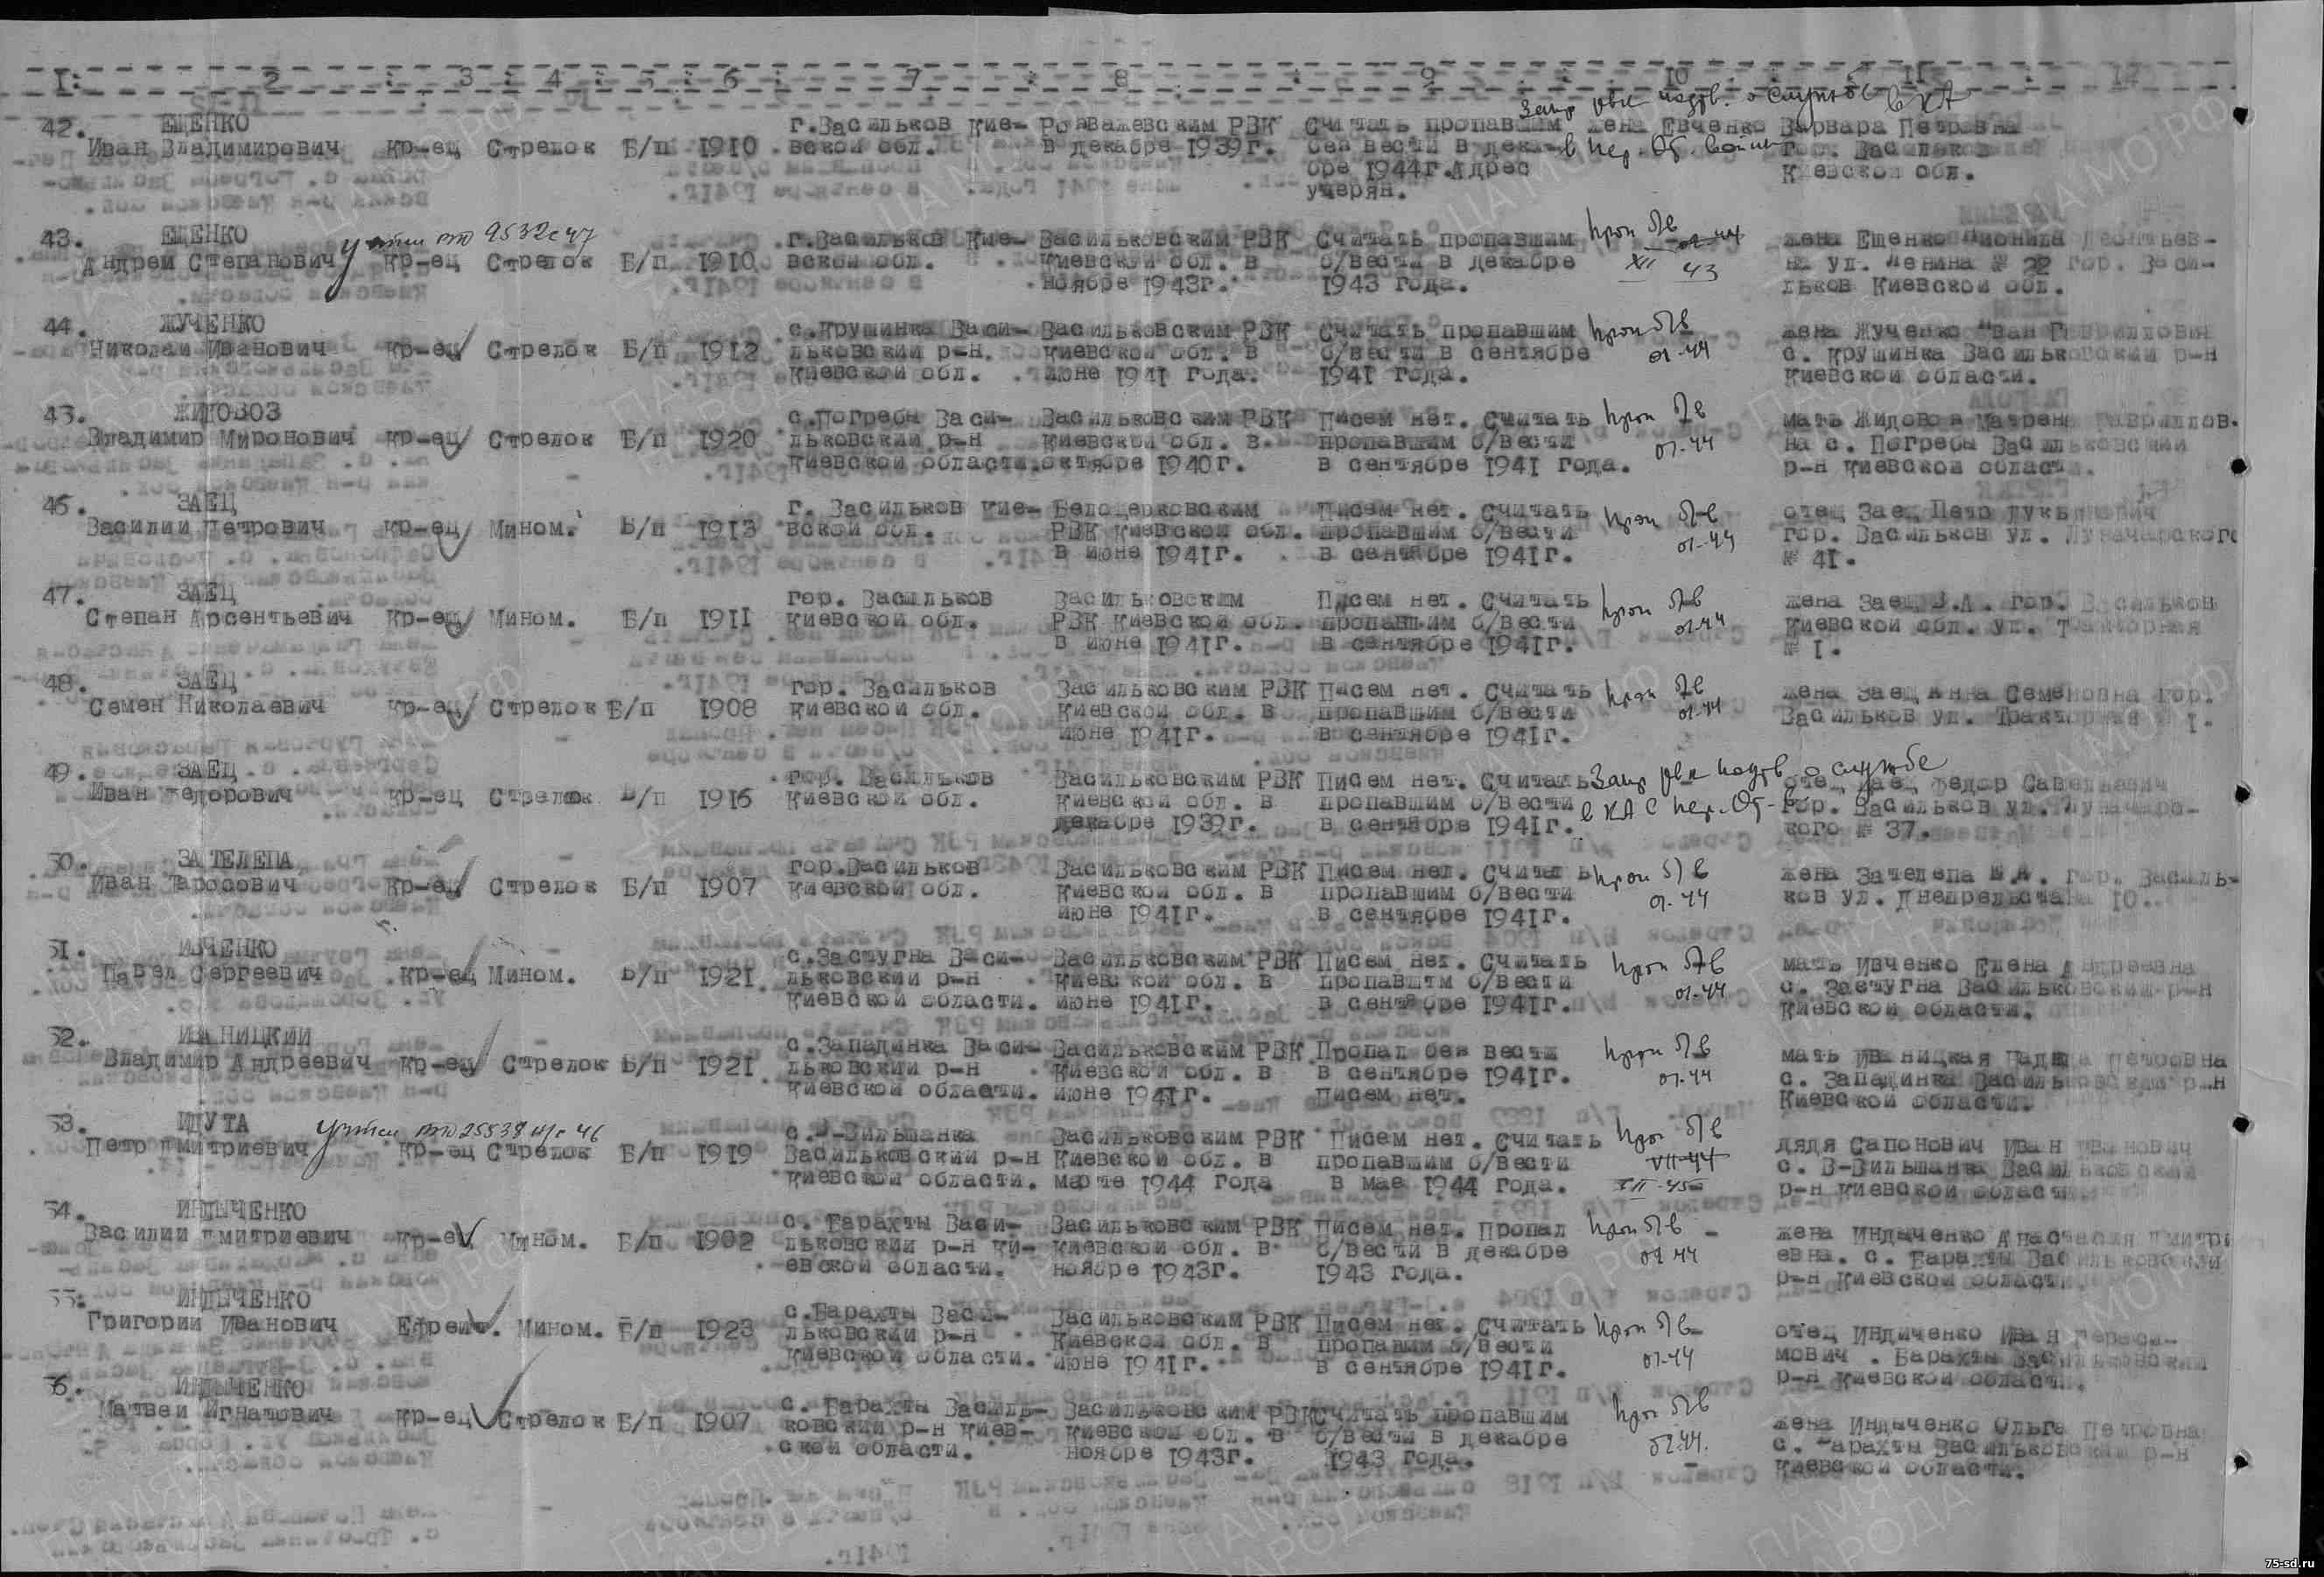 1 2 3 4 5 6 7 8 9 10 11 12
Запр рвк подтв. о службе в КА
42. ЕЩЕНКО г.Васильков Кие- Розважевским РВК Считать пропавшим жена Евченко Варвара Петровна
Иван Владимирович кр-ец Стрелок Б/п 1910 вской обл. в декабре 1939г. без вести в дека- в пер. От. войны гор. Васильков
бре 1944г.Адрес Киевской обл.
утерян.
43. ЕЩЕНКО 9532с 47 г.Васильков Кие- Васильковским РВК Считать пропавшим проп б/в жена Ещенко Леонтьев-
Андрей Степанович кр-ец Стрелок Б/п 1910 вской обл. Киевской обл. в б/вести в декабре XII 43 на ул. Ленина № 22 гор. Васи-
ноябре 1943г. 1943 года. льков Киевской обл.
44. ЖУЧЕНКО с.Крушинка Васи- Васильковским РВК Считать пропавшим проп б/в жена Жученко Иван Гавриллович
Николай Иванович кр-ец Стрелок Б/п 1912 льковский р-н. Киевской обл. в б/вести в сентябре 01-44 с. Крушинка Васильковский р-н
Киевской обл. июне 1941 года. 1941 года. Киевской области.
45. ЖИДОВОЗ с.Погребы Васи- Васильковским РВК Писем нет. Считать проп б/в мать Жидовоз Матрена Гавриллов.
Владимир Миронович кр-ец Стрелок Б/п 1920 льковский р-н Киевской обл. в пропавшим б/вести 01-44 на с. Погребы Васильковский
Киевской области. октябре 1940г. в сентябре 1941 года. р-н Киевской области.
46. ЗАЕЦ г. Васильков Кие- Белоцерковским Писем нет. Считать проп б/в отец Заец Петр Лукьянович
Василий Петрович кр-ец Мином. Б/п 1913 вской обл. РВК Киевской обл. пропавшим б/вести 01-44 гор. Васильков ул. Луначарского
в июне 1941г. в сентябре 1941г. № 41.
47. ЗАЕЦ гор. Васильков Васильковским Писем нет. Считать проп б/в жена Заец З.А. гор. Васильков
Степан Арсентьевич кр-ец Мином. Б/п 1911 Киевской обл. РВК Киевской обл. пропавшим б/вести 01-44 Киевской обл. ул. Тракторная
в июне 1941г. в сентябре 1941г. № 1.
48. ЗАЕЦ гор. Васильков Васильковским РВК Писем нет. Считать проп б/в жена Заец Анна Семеновна гор.
Семен Николаевич кр-ец Стрелок Б/п 1908 Киевской обл. Киевской обл. в пропавшим б/вести 01-44 Васильков ул. Тракторная № 1.
июне 1941г. в сентябре 1941г.
49. ЗАЕЦ гор. Васильков Васильковским РВК Писем нет. Считать Запр рвк подтв о службе отец Заец Федор Савельевич
Иван Федорович кр-ец Стрелок Б/п 1916 Киевской обл. Киевской обл. в пропавшим б/вести в КА с пер. От. в гор. Васильков ул. Луначарс-
декабре 1939г. в сентябре 1941г. кого № 37.
50. ЗАТЕЛЕПА гор.Васильков Васильковским РВК Писем нет. Считать проп б/в жена Зателепа М.А. гор. Василь-
Иван Таросович кр-ец Стрелок Б/п 1907 Киевской обл. Киевской обл. в пропавшим б/вести 01-44 ков ул. Днепрельстана 10.
июне 1941г. в сентябре 1941г.
51. ИВЧЕНКО с.Застугна Васи- Васильковским РВК Писем нет. Считать проп б/в мать Ивченко Елена Андреевна
Павел Сергеевич кр-ец Мином. Б/п 1921 льковский р-н Киевской обл. в пропавшим б/вести 01-44 с. Застугна Васильковский р-н
Киевской области. июне 1941г. в сентябре 1941г. Киевской области.
52. ИВАНИЦКИЙ с.Западинка Васи- Васильковским РВК Пропал без вести проп б/в мать Иваницкая Петровна
Владимир Андреевич кр-ец Стрелок Б/п 1921 льковский р-н Киевской обл. в в сентябре 1941г. 01-44 с. Западинка Васильковский р-н
Киевской области. июне 1941г. Писем нет. Киевской области.
53. ИЩУТА с.В-Вильшанка Васильковским РВК Писем нет. Считать проп б/в дядя Сапонович Иван Иванович
Петр Дмитриевич кр-ец Стрелок Б/п 1919 Васильковский р-н Киевской обл. в пропавшим б/вести VII-44 с. В-Вильшанка Васильковский
Киевской области. марте 1944 года в мае 1944 года. р-н Киевской области.
54. ИНДЫЧЕНКО с. Барахты Васи- Васильковским РВК Писем нет. Пропал проп б/в жена Индыченко Анастасия Дмитри
Василий Дмитриевич кр-ец Мином. Б/п 1902 льковский р-н Ки- Киевской обл. в б/вести в декабре 02 44 евна. с. Барахты Васильковский
евской области. ноябре 1943г. 1943 года. р-н Киевской области.
55. ИНДЫЧЕНКО с.Барахты Васи- Васильковским РВК Писем нет. Считать проп б/в отец Индиченко Иван Гераси-
Григорий Иванович Ефрейт. Мином. Б/п 1923 льковский р-н Киевской обл. в пропавшим б/вести 01-44 мович . Барахты Васильковский
Киевской области. июне 1941г. в сентябре 1941г. р-н Киевской област..
56. ИНДЫЧЕНКО с. Барахты Василь- Васильковским РВК Считать пропавшим проп б/в жена Индыченко Ольга Петровна
Матвей Игнатович кр-ец Стрелок Б/п 1907 ковский р-н Киев- Киевской обл. в б/вести в декабре 02.44. с. Барахты Васильковский р-н
ской области. ноябре 1943г. 1943 года. Киевской области.
75-sd.ru